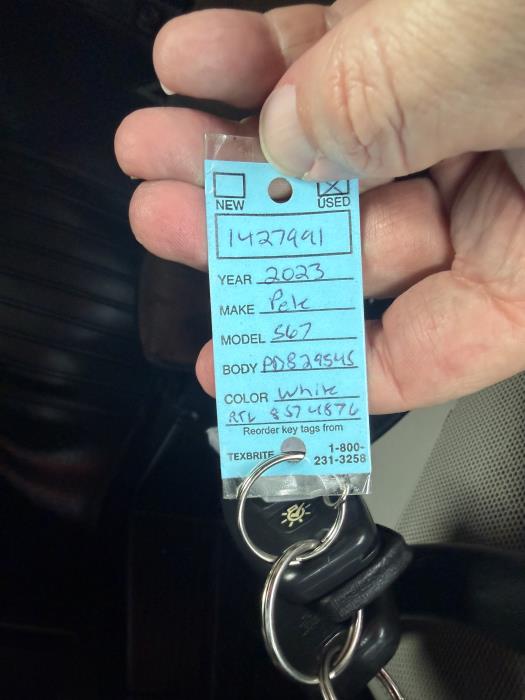 NEW USED
1427991
YEAR 2023
MAKE Pete
MODEL 567
BODY PD829545
COLOR White
RTL 8574876
Reorder key tags from
TEXBRITE 1-800-
231-3258